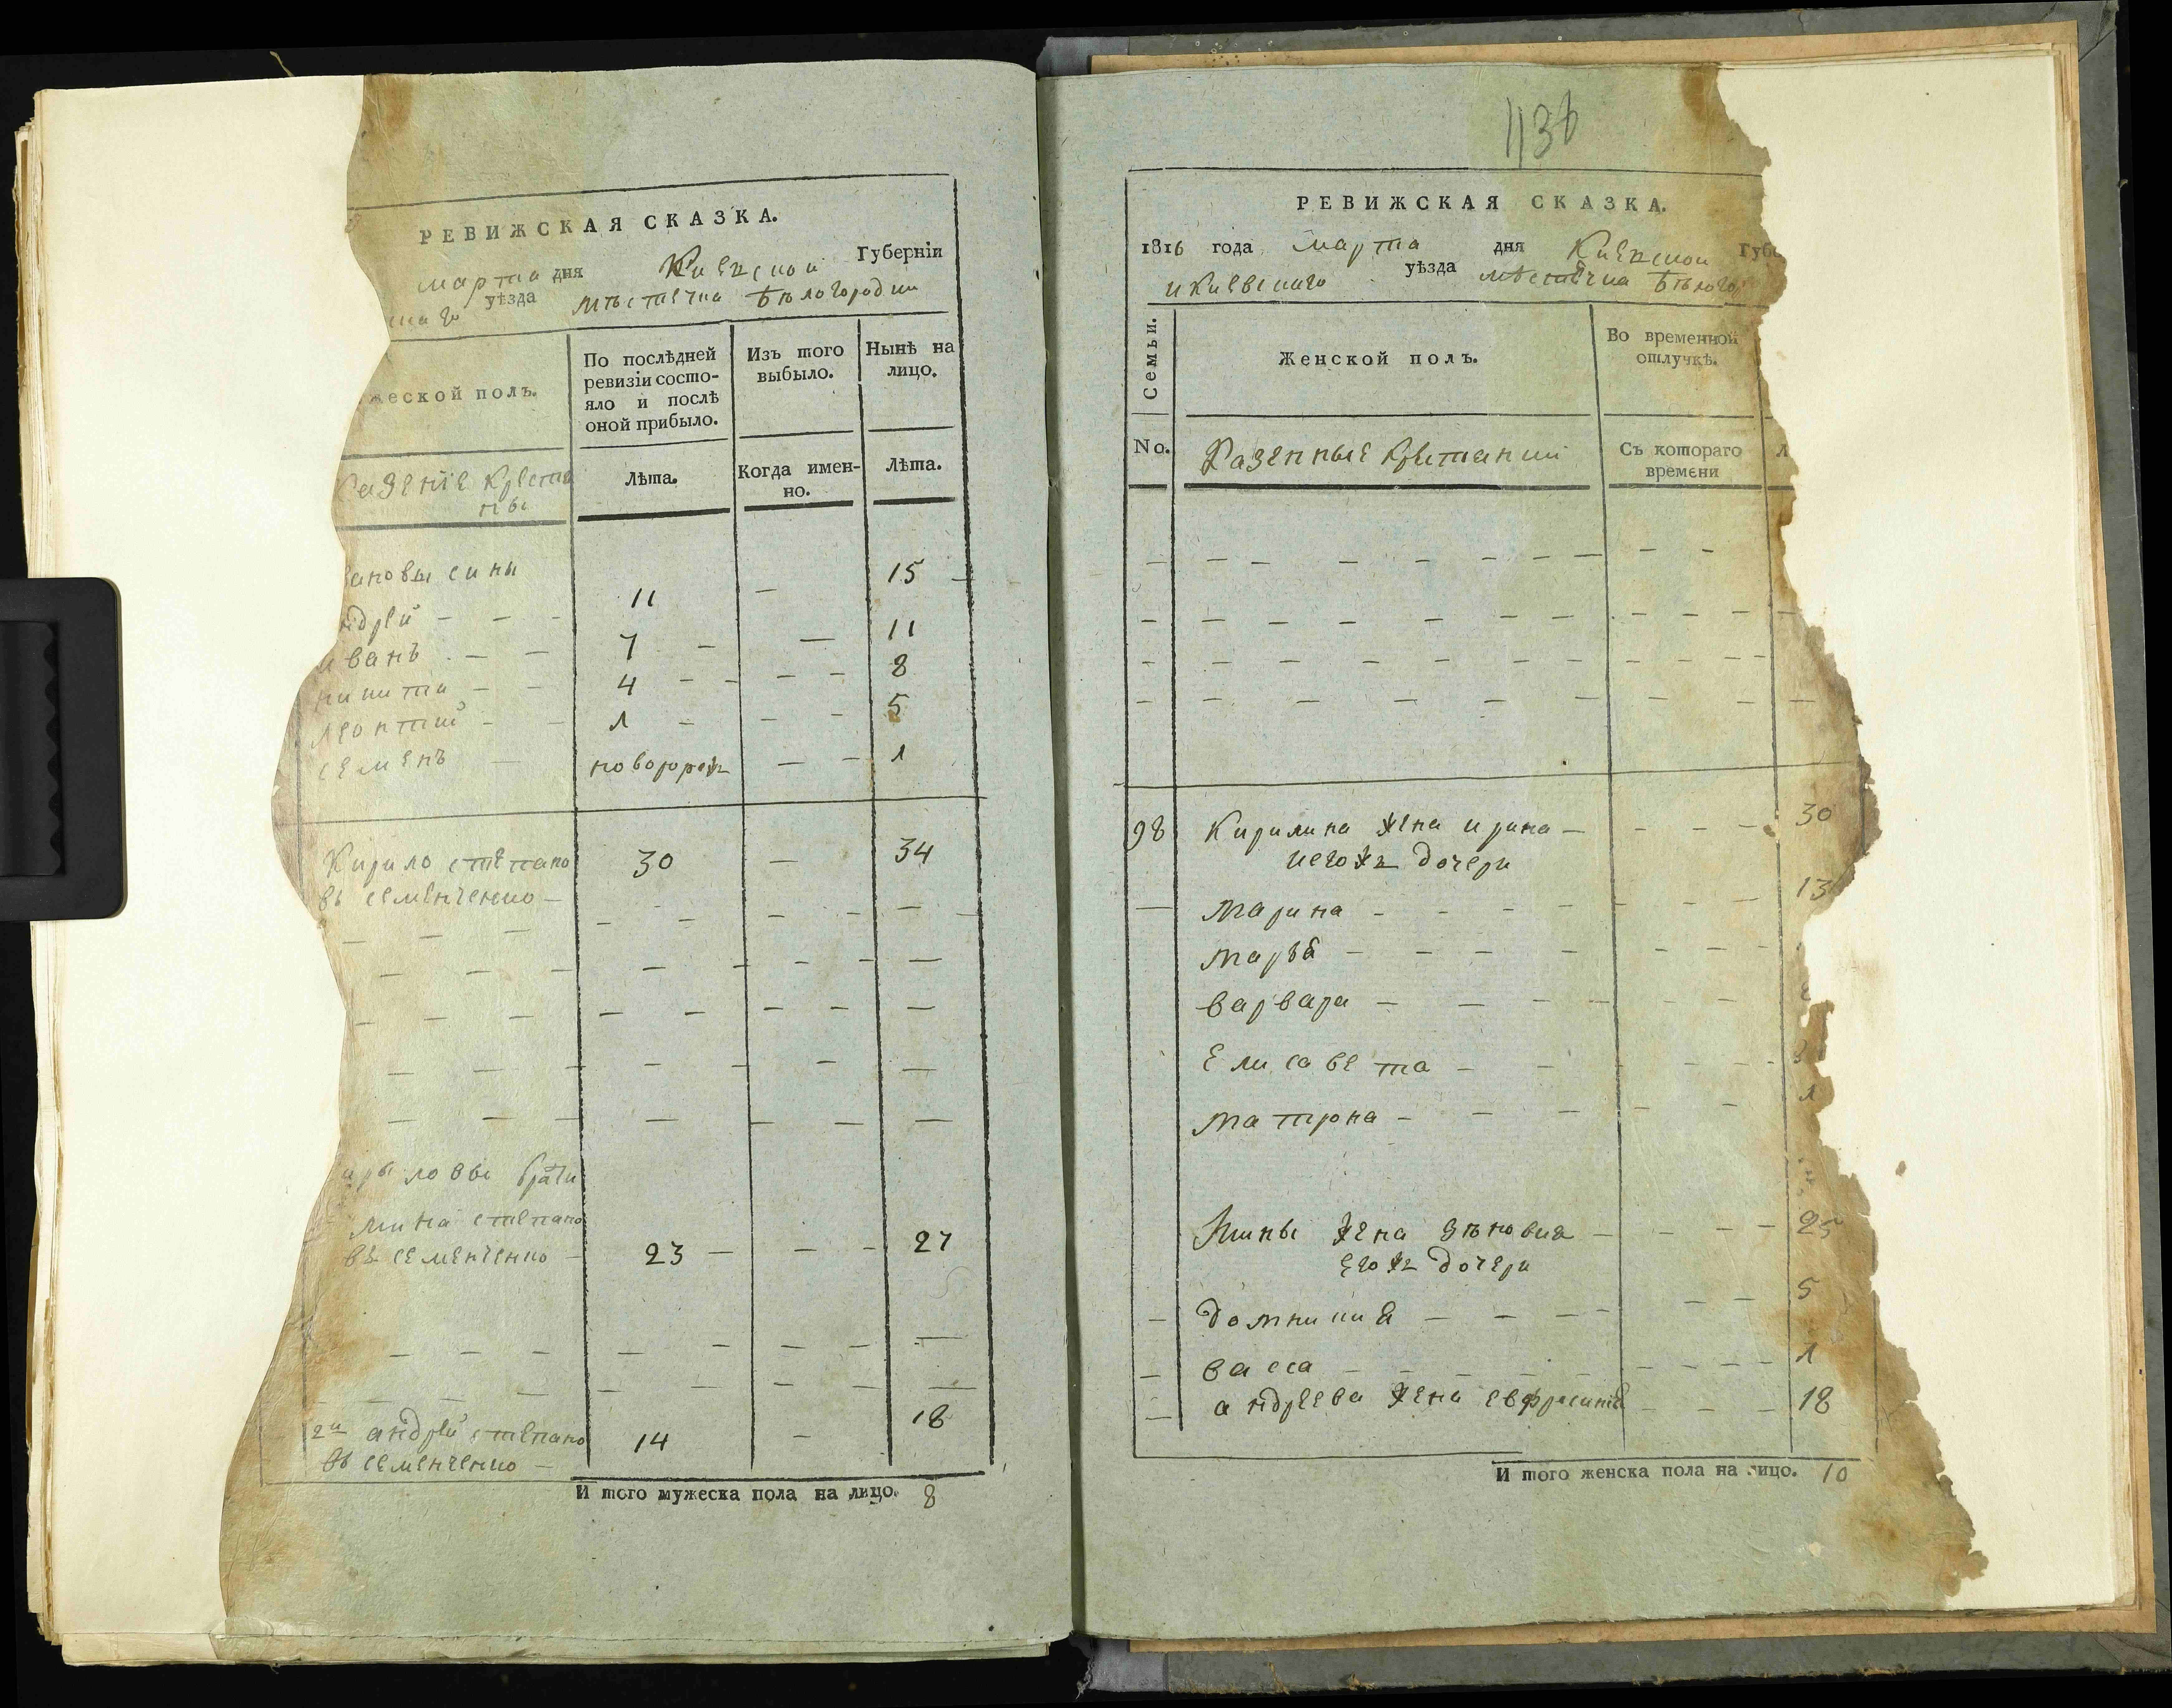 РЕВИЖСКАЯ СКАЗКА.
марта дня Киевской Губерніи
уѣзда мѣстечка Бѣлогородки
жеской полъ.
По послѣдней ревизіи состо-
яло и послѣ
оной прибыло.
Изъ того
выбыло.
Нынѣ на
лицо.
Казеніе Крестя
ны
Лѣта.
Когда имен-
но.
Лѣта.
ановы сины
ндрей - - - 11 - 15
иванъ - - 7 - - 11
никита - - 4 - - - - 8
леонтий - - 1 - - - 5
семенъ - новорож - - 1
Кирило степано 30 - 34
въ семенченко -
братя
мина степано
въ семенченко - 23 - - - 27
2й андрей степано 14 - 18
въ семенченко -
И того мужеска пола на лицо. 8
113б
РЕВИЖСКАЯ СКАЗКА.
1816 года марта дня Киевской Губе
и Киевскаго уѣзда мѣстечка Бѣлого
Семьи.
Женской полъ.
Во временной
отлучкѣ.
No.
Казенные Крестянки
Съ котораго
времени
98 Кирилина жена ирина - - - - 30
иегожъ дочери
Марина - - - - - - - 13
Марья - - - - - - -
варвара - - - - - -
Елисавета - - - - -
Матрона - - - - - 1
Мины жена зѣновия - - - - 25
егожъ дочери
домникия - - - - - - 5
васса - - - - - - - - 1
андреева жена евфросиния - - - 18
И того женска пола на лицо. 10